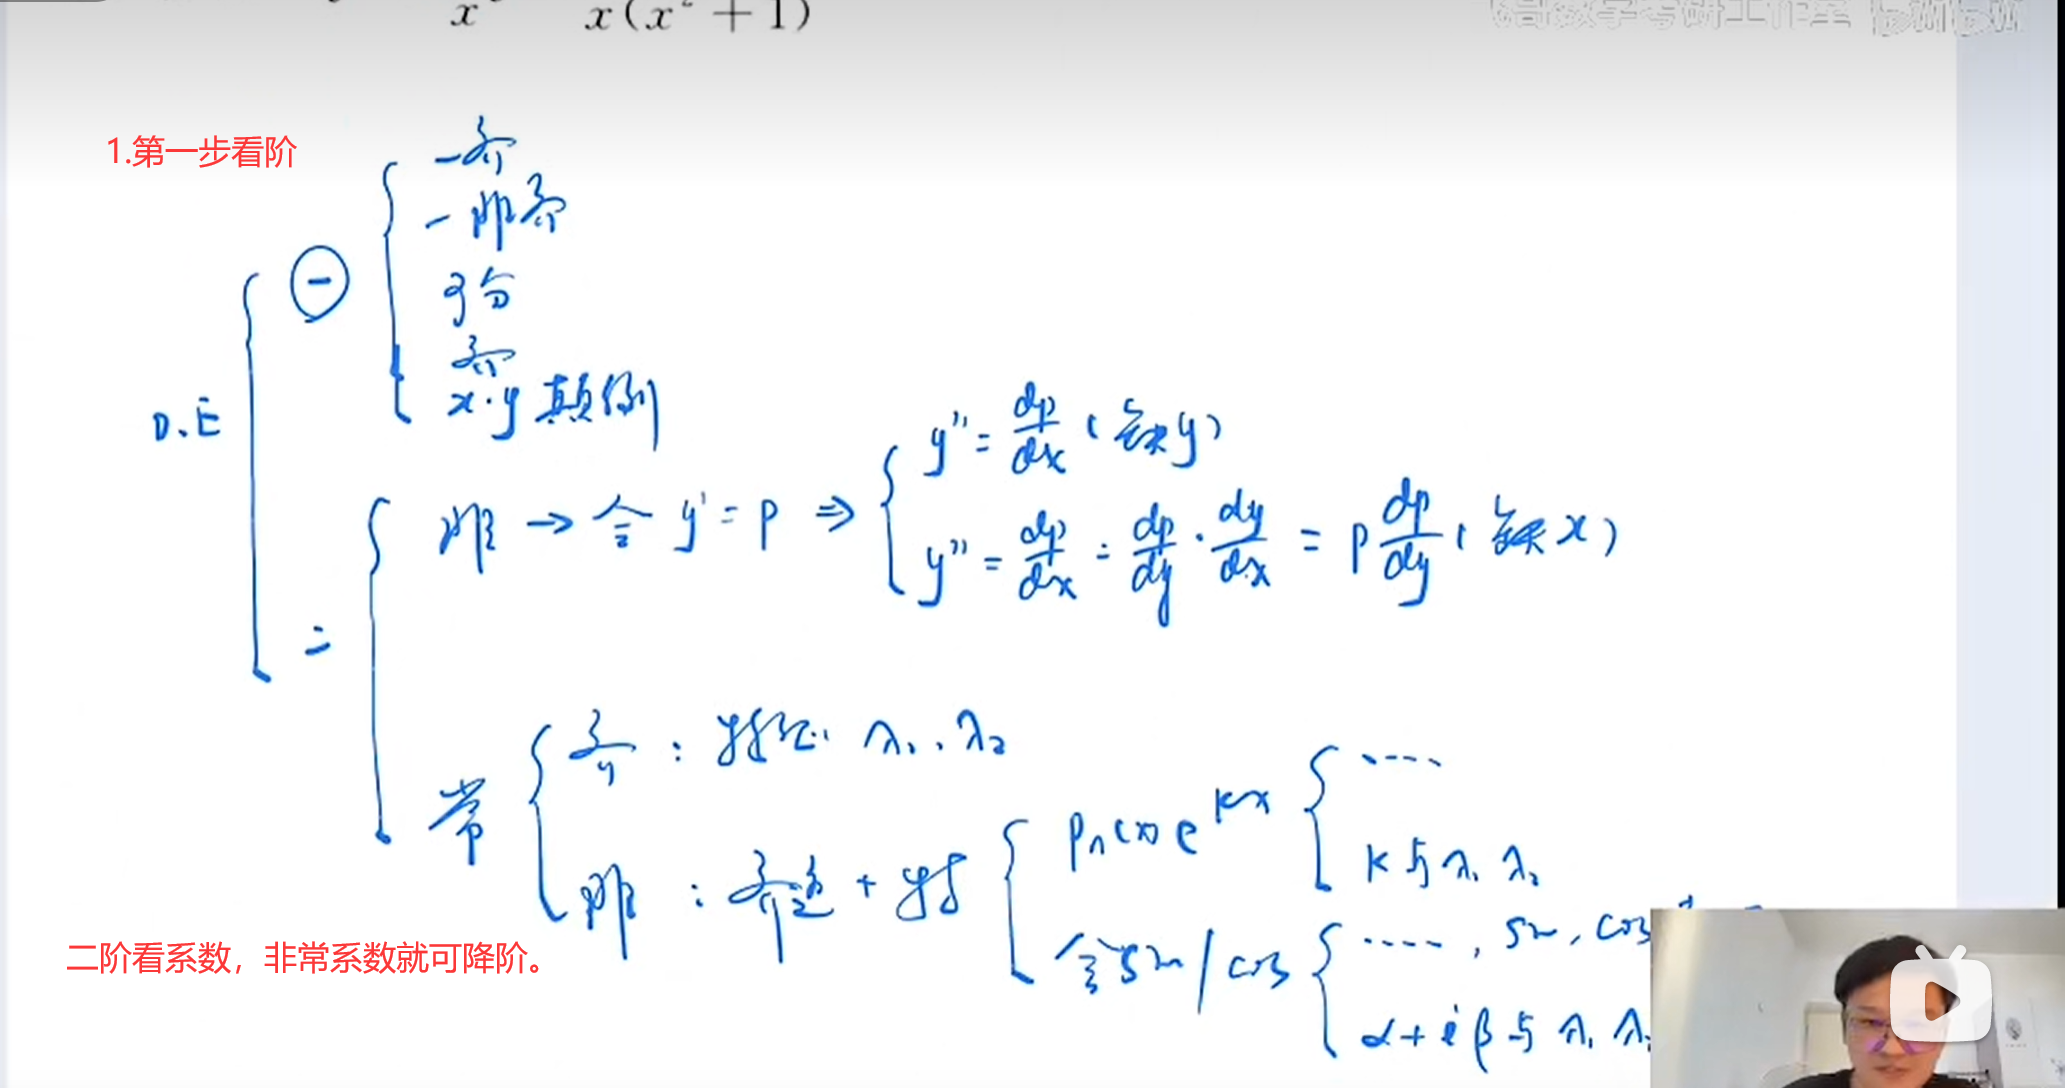 x x(x² + 1)
1.第一步看阶
一齐
一非齐
可分
齐
x·y 颠倒
D.E
一
非 → 令 y' = p ⇒
y'' = dp/dx (缺y)
y'' = dp/dx = dp/dy · dy/dx = p dp/dy (缺x)
二
常
齐 : 特征 λ₁, λ₂
非 : 齐通 + 特
Pn(x)e^{kx}
....
k与λ₁ λ₂
含sin/cos
...., sin, cos
α+iβ与λ₁ λ₂
二阶看系数，非常系数就可降阶。